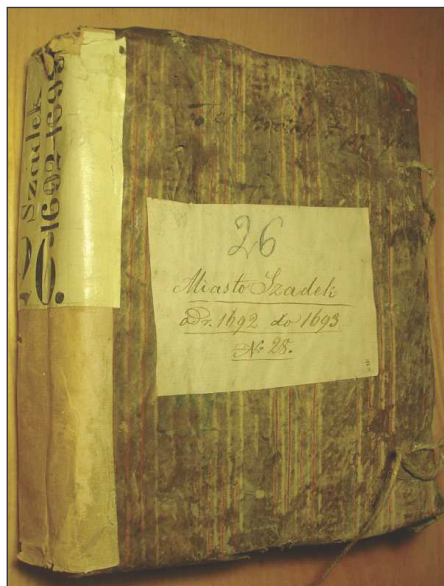 Szadek
1692-1693
26.
26
Miasto Szadek
od r. 1692 do 1693
No 28.